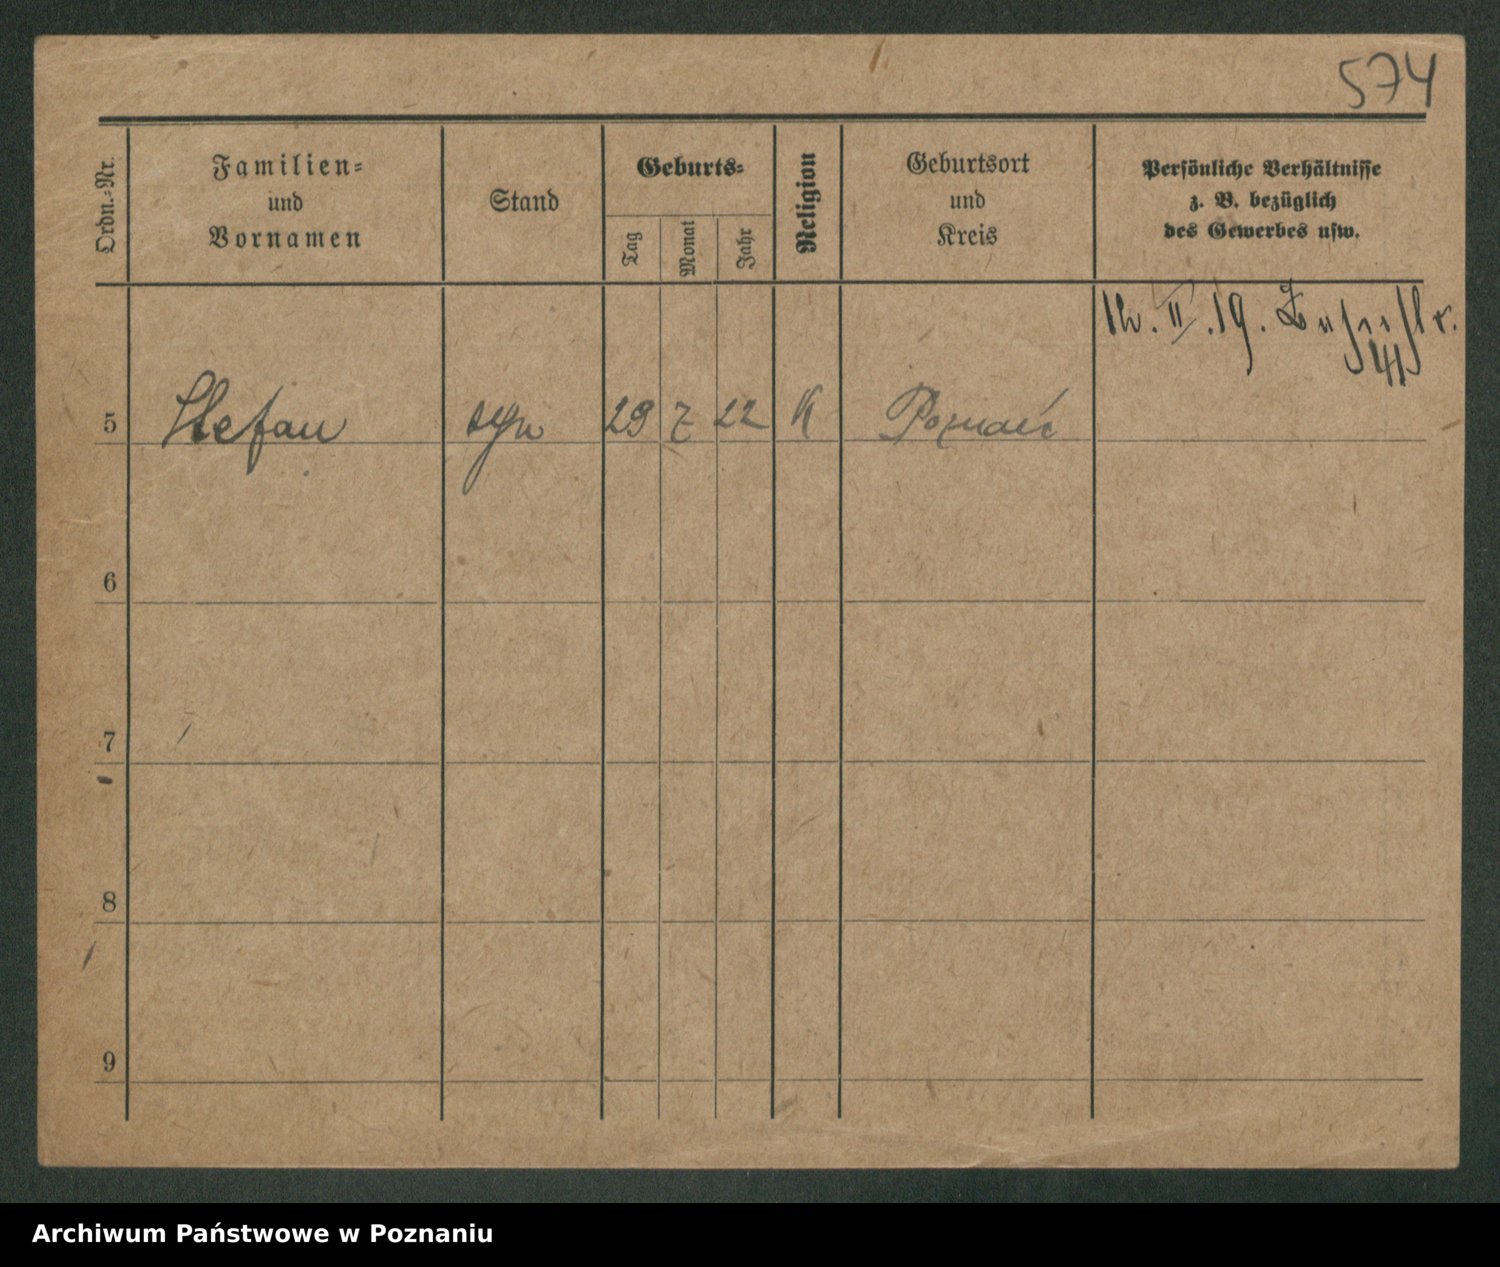 574
Ordn.-Nr.
Familien-
und
Vornamen
Stand
Geburts-
Tag
Monat
Jahr
Religion
Geburtsort
und
Kreis
Persönliche Verhältnisse
z. B. bezüglich
des Gewerbes usw.
12. II. 19.
41
5 Stefan syn 29 7 22 K Poznań
6
7
8
9
Archiwum Państwowe w Poznaniu